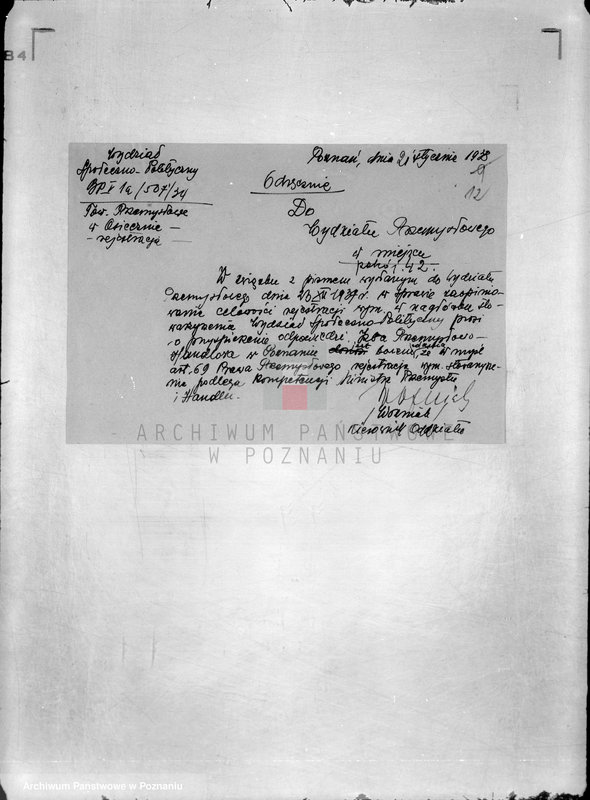 B4
Wydział
Społeczno-Polityczny
Poznań, dnia 2/ stycznia 1938
12
Odręcznie
Tow. Przemysłowe
w Osiecznie —
— rejestracja —
Do
Wydziału Przemysłowego
w miejscu
pokój 42 -
W związku z pismem wysłanym do Wydziału
Przemysłowego dnia 23 XII 1937 r. w sprawie zaopinio-
wania celowości rejestracji wym. w nagłówku Sto-
warzyszenia Wydział Społeczno-Polityczny prosi
o przyśpieszenie odpowiedzi. Izba Przemysłowo-
Handlowa w Poznaniu bowiem, że w myśl
art. 69 Prawa Przemysłowego rejestracja wym. Stowarzysze-
nia podlega kompetencji Ministra Przemysłu
i Handlu.
Kierownik Oddziału
ARCHIWUM PAŃSTWOWE
W POZNANIU
Archiwum Państwowe w Poznaniu